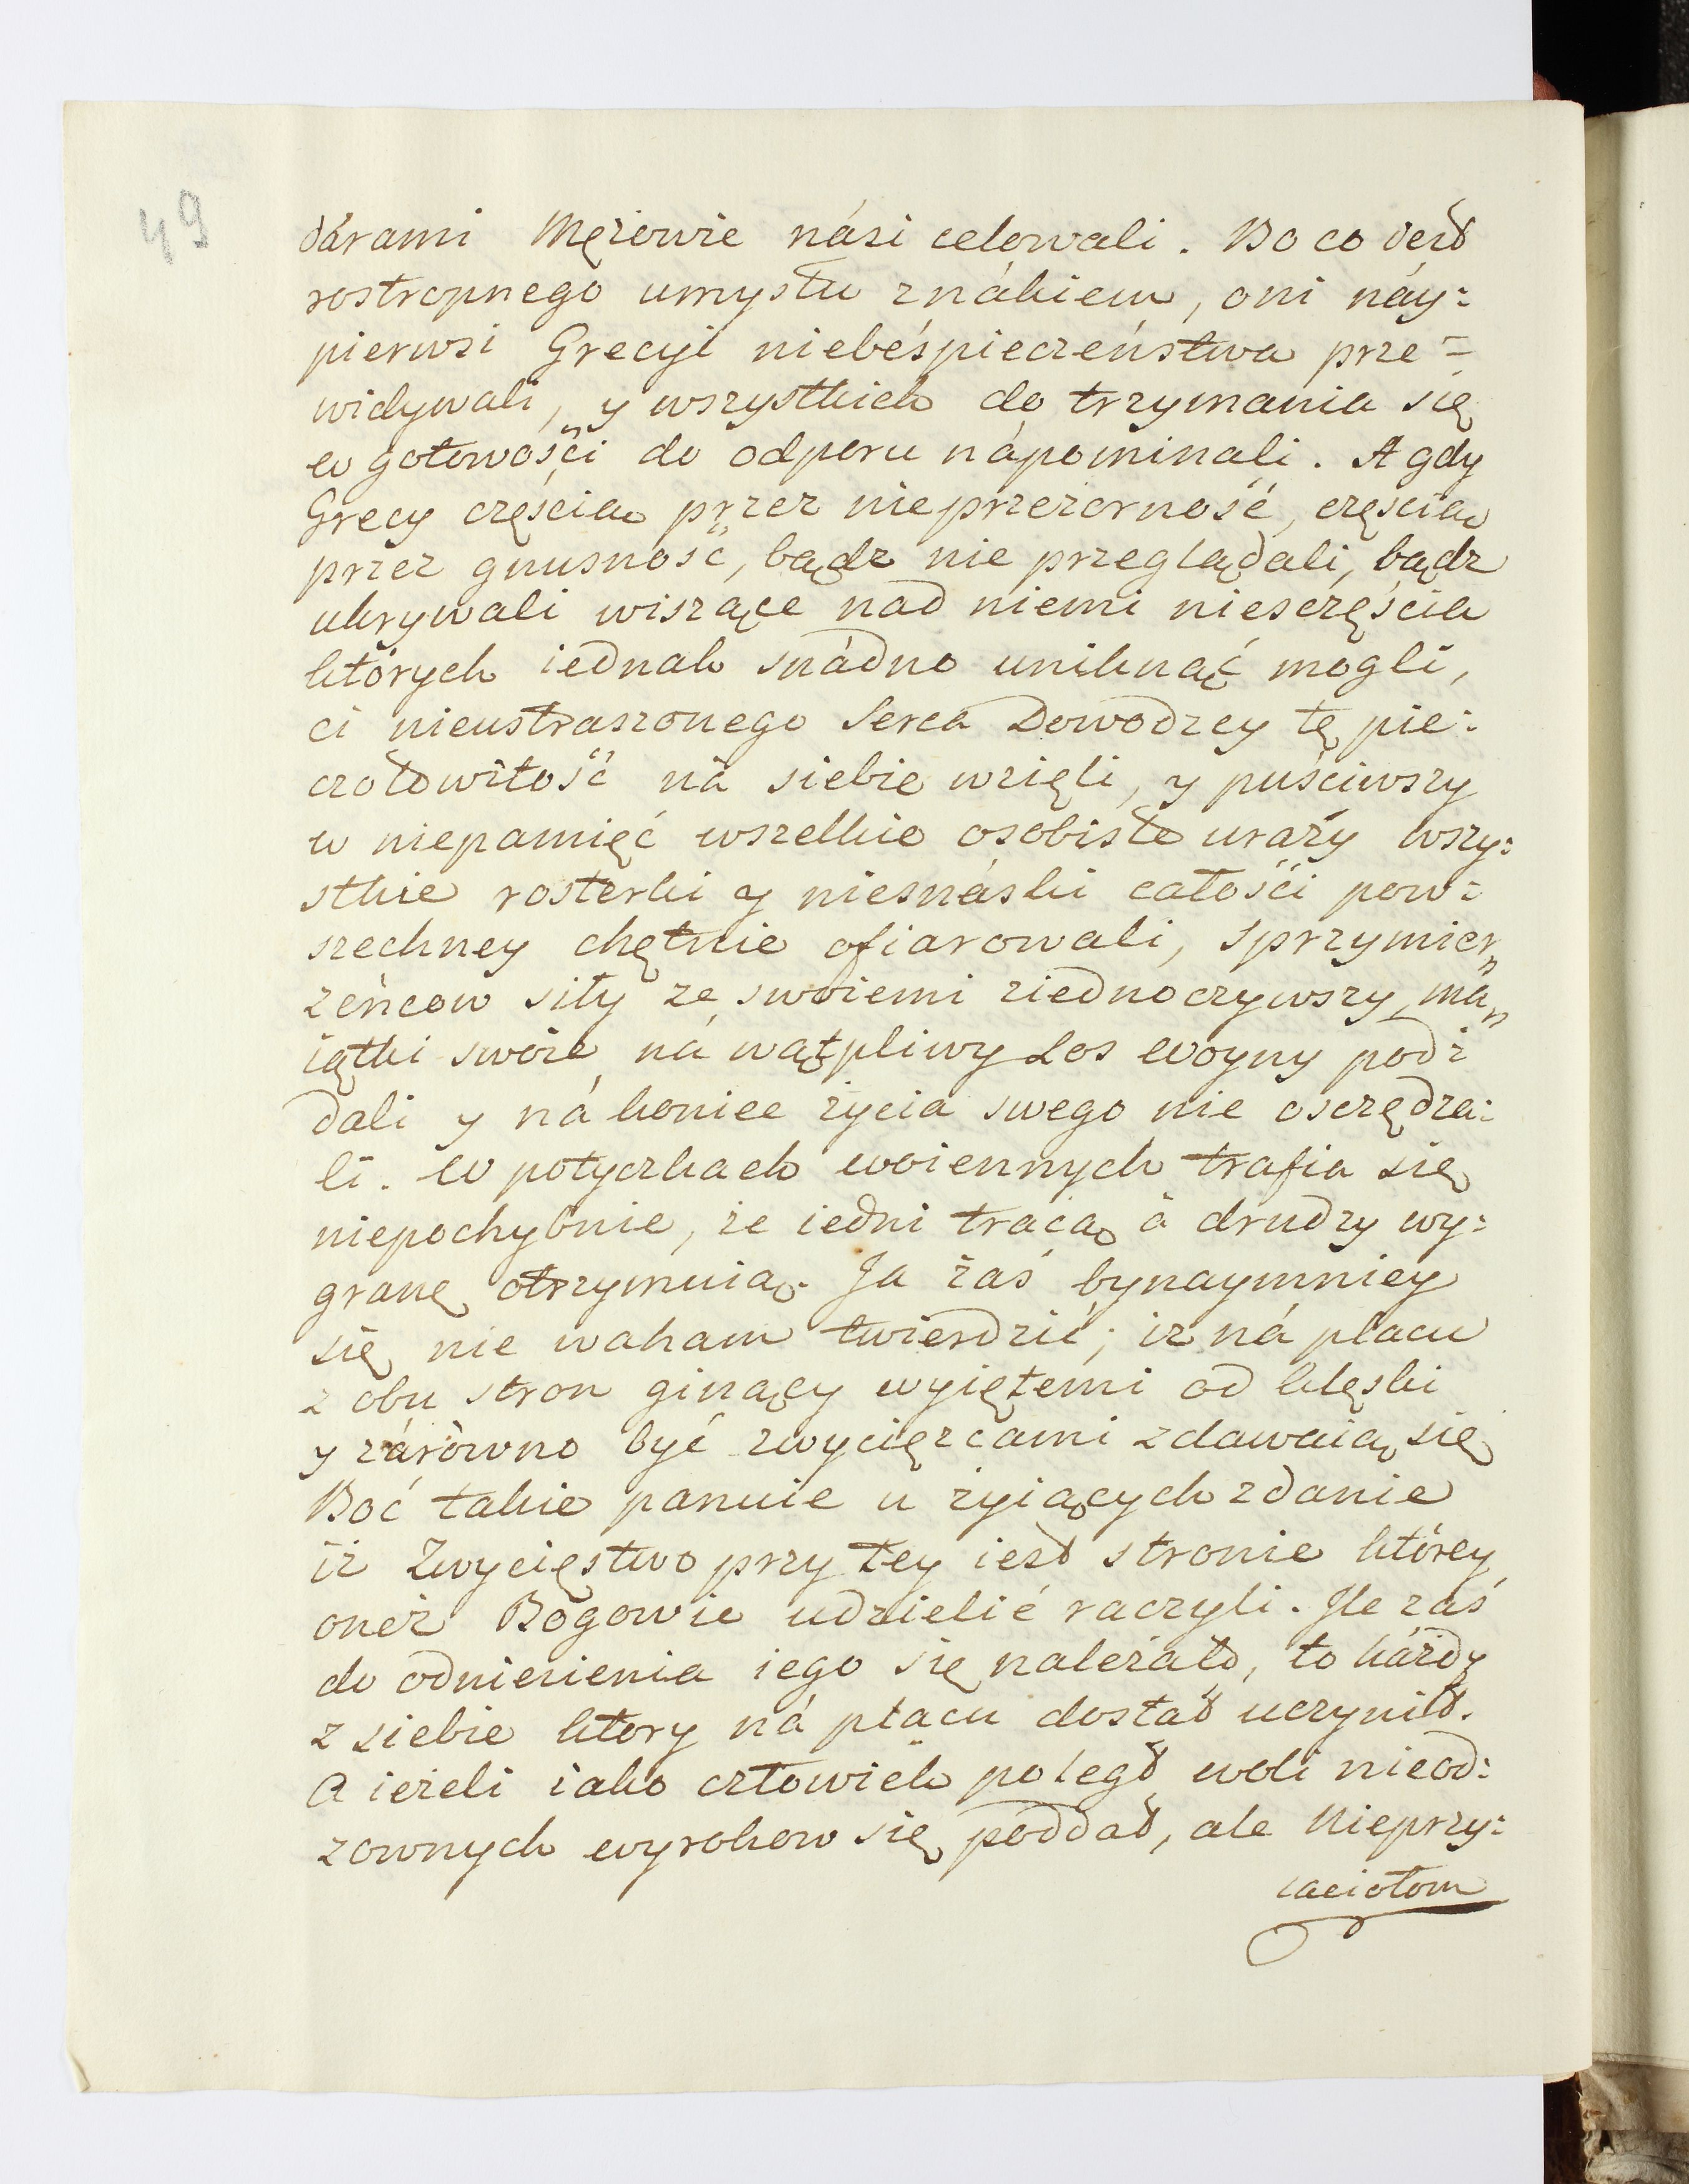 49
dárami Mężowie nási celowali. Bo co jest
rostropnego umysłu znákiem, oni náy:
pierwsi Grecyi niebéśpieczeństwa prze=
widywali, y wszystkich do trzymania się
w gotowości do odporu nápominali. A gdy
Grecy częścią przez nieprzezorność, częścią
przez gnusność, bądz nie przeglądali, bądz
ukrywali wiszące nad niemi niesczęścia
których iednak snádno uniknąć mogli,
ci nieustraszonego Serca Dowodzcy tę pie:
czołowitość ná siebie wzięli, y puściwszy
w niepamięć wszelkie osobiste urazy wszy:
stkie rosterki y niesnáski całości pow:
szechney chętnie ofiarowali, Sprzymier„
zeńcow siły ze swoiemi ziednoczywszy, ma„
iątki swoie ná wątpliwy Los woyny pod:
dali y ná koniec życia swego nie osczędza:
li. W potyczkach woiennych trafia się
niepochybnie, że iedni tracą á drudzy wy:
granę otrzymuią. Ja zaś bynaymniey
się nie waham twierdzić; iz ná placu
z obu stron ginący wyiętemi od klęski
y zárówno być zwycięzcami zdawaią się
Boć takie panuie u żyiących zdanie
iż Zwycięstwo przy tey iest stronie którey
oneż Bogowie udzielić raczyli. Ile zaś
do odniesienia iego się należało, to káżdy
z siebie ktory ná placu dostał uczynił.
A ieżeli iako człowiek poległ woli nieod:
zownych wyrokow się poddał, ale Nieprzy:
iaciołom